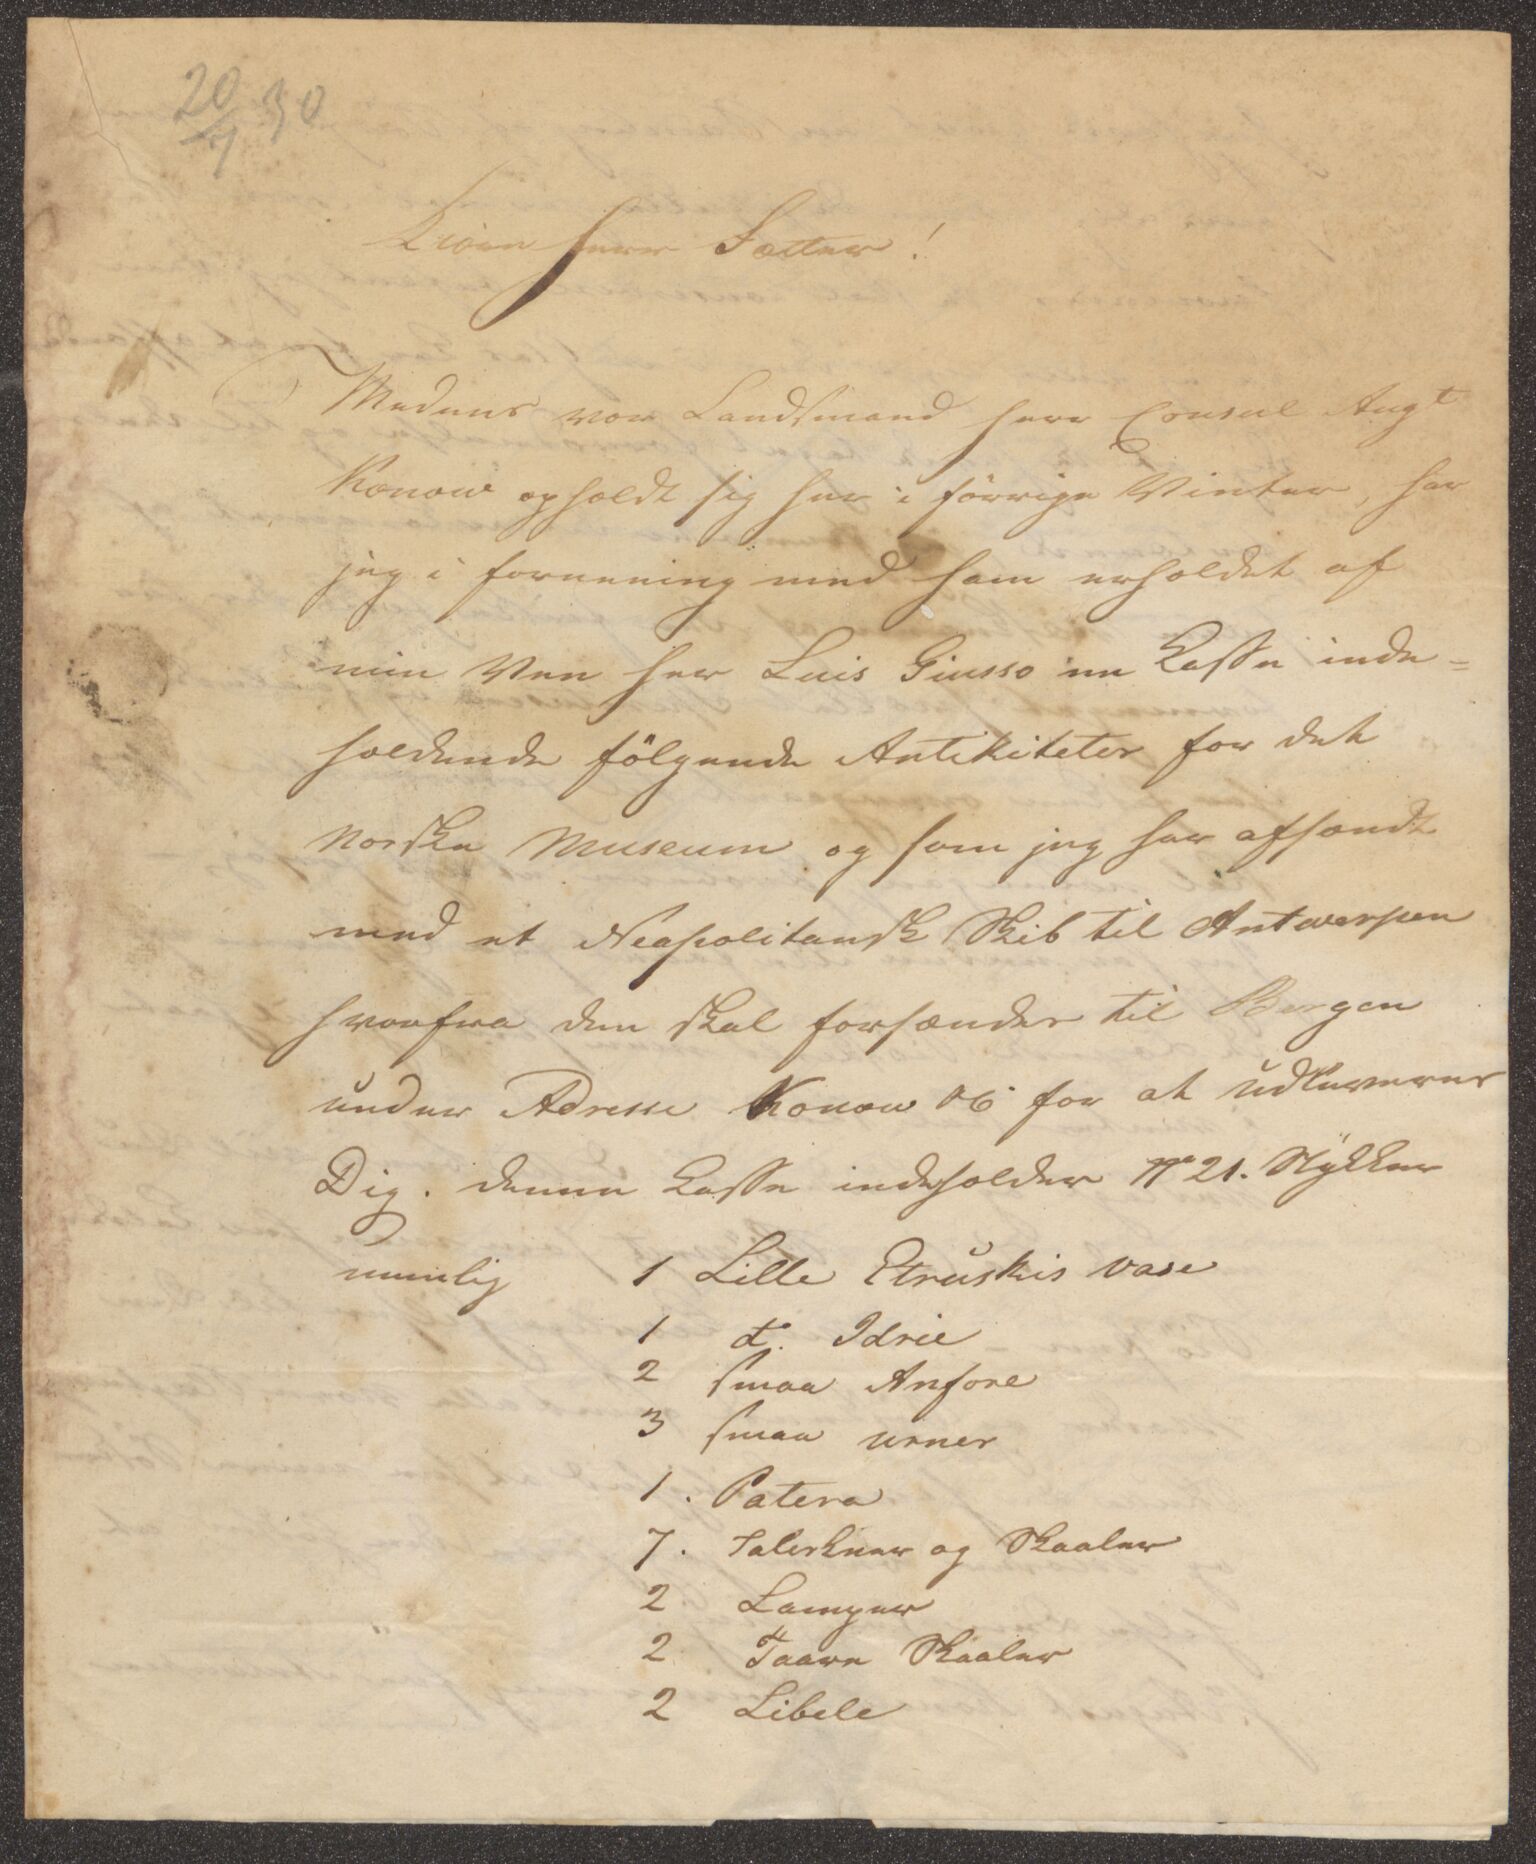 20/7 30
Kiære Herr Fætter!
Medens vor Landsmand Herr Consul Augt
Konow opholdt sig her i förrige Vinter, har
jeg i forenening med ham erholdet af
min Ven Her Luis Giusso en Kasse inde=
holdende fölgende Antikiteter for det
Norske Museum og som jeg har afsændt
med et Neapolitansk Skib til Antwerpen
hvorfra den skal forsændes til Bergen
under Adresse Konow & Co for at udleveres
Dig. denne Kasse indeholder No 21. Stÿkker
nemlig 1 Lille Etruskis vase
1 do. Idrie
2 smaa Anfore
3 smaa urner
1. Patera
7. Talerkner og Skaaler
2 Lamper
2 Taare Skaaler
2 Libele